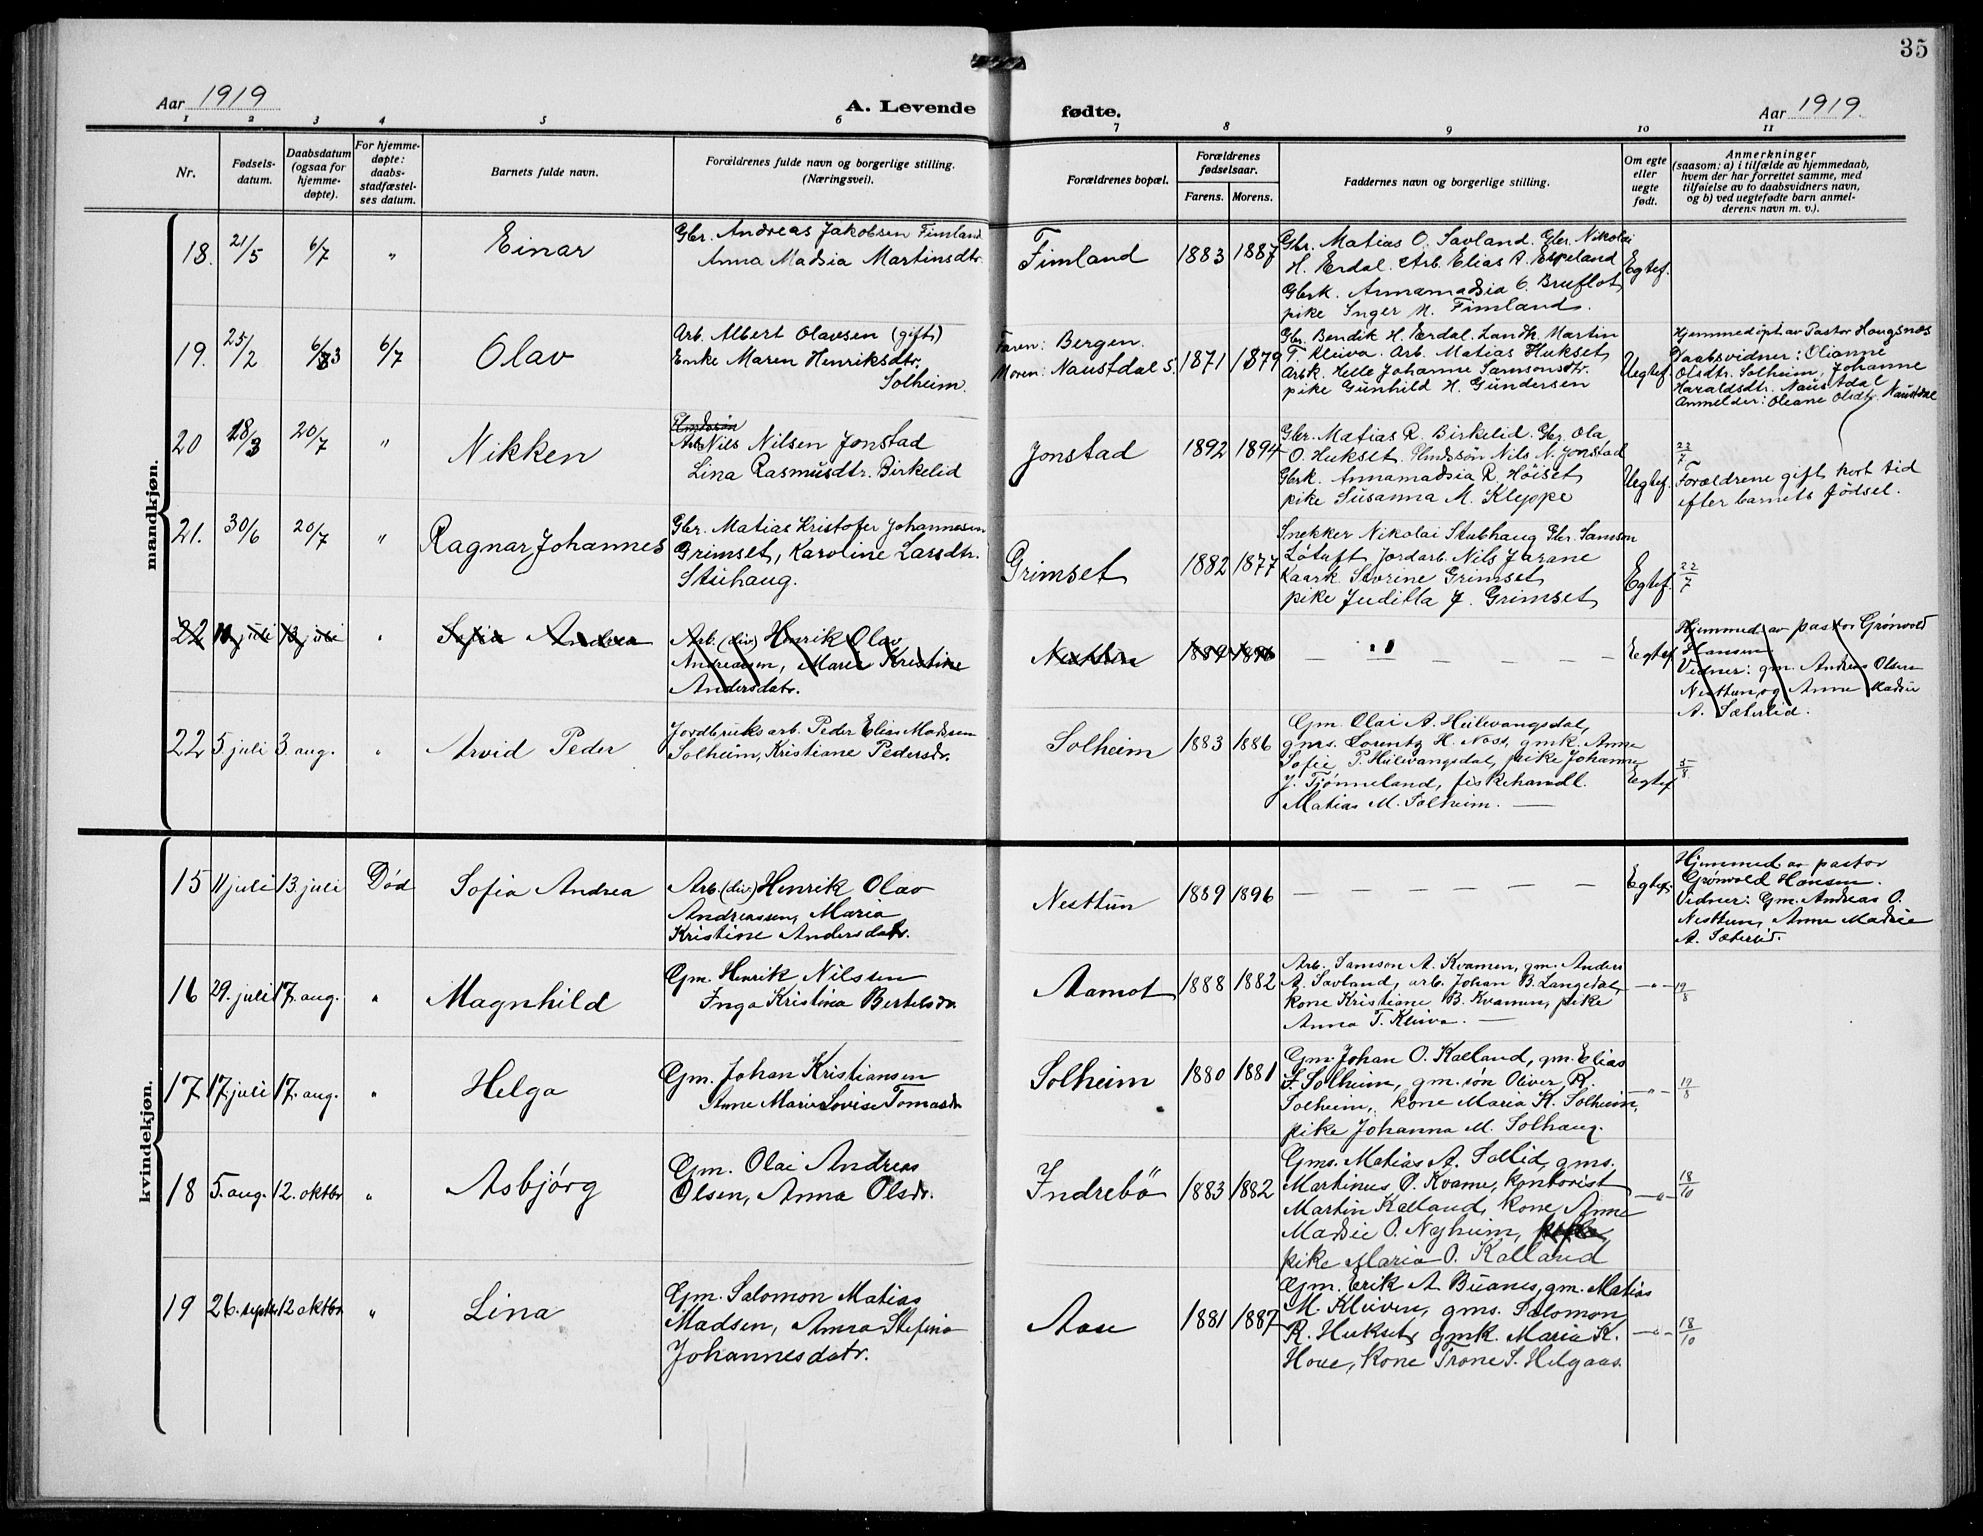 35
Aar 1919
A. Levende
fødte.
Aar 1919.
1 2 3 4 5 6 7 8 9 10 11
Nr.
Fødsels-
datum.
Daabsdatum
(ogsaa for
hjemme-
døpte).
For hjemme-
døpte:
daabs-
stadfæstel-
ses datum.
Barnets fulde navn.
Forældrenes fulde navn og borgerlige stilling.
(Næringsvei).
Forældrenes bopæl.
Forældrenes
fødselsaar.
Farens. Morens.
Faddernes navn og borgerlige stilling.
Om egte
eller
uegte
født.
Anmerkninger
(saasom: a) i tilfælde av hjemmedaab,
hvem der har forrettet samme, med
tilføielse av to daabsvidners navn,
og b) ved uegtefødte barn anmel-
derens navn m. v.).
mandkjøn.
18. 21/5 6/7 " Einar
Gbr. Andreas Jakobsen Fimland
Anna Madsia Martinsdtr.
Fimland 1883 1887
Gbr. Matias O. Savland. Gbr. Nikolai
H. Erdal. Arb. Elias A. Espeland
Gbrk. Annamadsia O. Bruflot,
pike Inger M. Fimland.
Egtef.
19. 25/2 6/3 6/7 Olav
Arb. Albert Olavsen (gift)
Enke Maren Henriksdtr.
Solheim.
Faren: Bergen.
Moren: Naustdal S. 1871 1879
Gbr. Bendik H. Erdal. Landh. Martin
T. Kleiva. Arb. Matias Hukset,
Arbk. Helle Johanne Samsonsdtr.
pike Gunhild H. Gundersen
Uegtef.
Hjemmedøpt av Pastor Hougsnæs
Daabsvidner: Olianne
Olsdtr. Solheim, Johanne
Haraldsdtr. Naustdal
Anmelder: Oleane Olsdtr. Naustdal
20 18/3 20/7 " Nikken
Nils Nilsen Jonstad
Lina Rasmusdtr. Birkelid
Jonstad 1892 1894
Gbr. Matias R. Birkelid. Gbr. Ola
O. Hukset. Nils N. Jonstad
Gbrk. Annamadsia R. Höiset
pike Susanna M. Kleppe
Uegtef.
22/7
Forældrene gift kort tid
efter barnets fødsel.
21. 30/6 20/7 " Ragnar Johannes
Gbr. Matias Kristofer Johannesen
Grimset, Karoline Larsdtr.
Stuhaug.
Grimset 1882 1877
Snekker Nikolai Stubhaug Gbr. Samson
Løtuft Jordarb. Nils Jarane
Kaark Savrine Grimset
pike Juditta J. Grimset
Egtef. 22/7
22 11 juli 13 juli " Sofia Andrea
Arb. (div) Henrik Olav
Andreassen, Maria Kristine
Andersdatr.
Nesttun 1889 1896 — " — — — —
Egtef
Hjemmed av pastor Grønvold
Hansen
Vidner: gm. Andreas Olsen
Nesttun, og Anne Madsie
A. Sæterlid.
22 5 juli 3. aug. " Arvid Peder
Jordbruksarb. Peder Elias Madsen
Solheim, Kristiane Pedersdr.
Solheim 1883 1886
Gm. Olai A. Heilevangsdal,
gms. Lorentz H. Noss, gmk. Anne
Sofie P. Heilevangsdal, pike Johanne
J. Tjønneland, fiskehandl.
Matias M. Solheim. —
Egtef. 5/8
kvindekjøn.
15 11 juli 13. juli Død Sofia Andrea
Arb. (div) Henrik Olav
Andreassen, Maria
Kristine Andersdatr.
Nesttun 1889 1896 — — — — — —
Egtef.
Hjemmed av pastor
Grønvold Hansen.
Vidner: Gm. Andreas O.
Nesttun, Anne Madsie
A. Sæterlid.
16 29. juli 17. aug. " Magnhild
Gm. Henrik Nilssen
Inga Kristina Bertelsdr.
Aamot 1888 1882
Arb. Samson A. Kvamen, gm. Anders
A. Savland, arb. Johan B. Langedal,
kone Kristiane B. Kvamen, pike
Anna T. Kleiva. —
—"— 19/8
17 17. juli 17. aug. " Helga
Gm. Johan Kristiansen
Anne Marie Lovise Tomasdr.
Solheim 1880 1881
Gm. Johan O. Kalland, gm. Elias
S. Solheim, gm. søn Oliver R.
Solheim, kone Maria K. Solheim,
pike Johanna M. Solhaug.
—"— 19/8
18 5. aug. 12. oktbr " Asbjørg
Gm. Olai Andreas
Olsen, Anna Olsdr.
Indrebö 1883 1882
Gms. Matias A. Sollid, gms.
Martinus O. Kvame, kontorist
Martin Kalland, kone Anne
Madsie O. Nyheim, pike
pike Maria O. Kalland
—"— 18/10
19 26. septbr 12 oktbr " Lina
Gm. Salomon Matias
Madsen, Anna Stefina
Johannesdatr.
Aase 1881 1887
Gm. Erik A Buanes, gm. Matias
M. Kleiven, gms. Salomon
R. Hukset, gmk. Maria K.
Hove, kone Trone S. Helgaas.
—"— 18/10